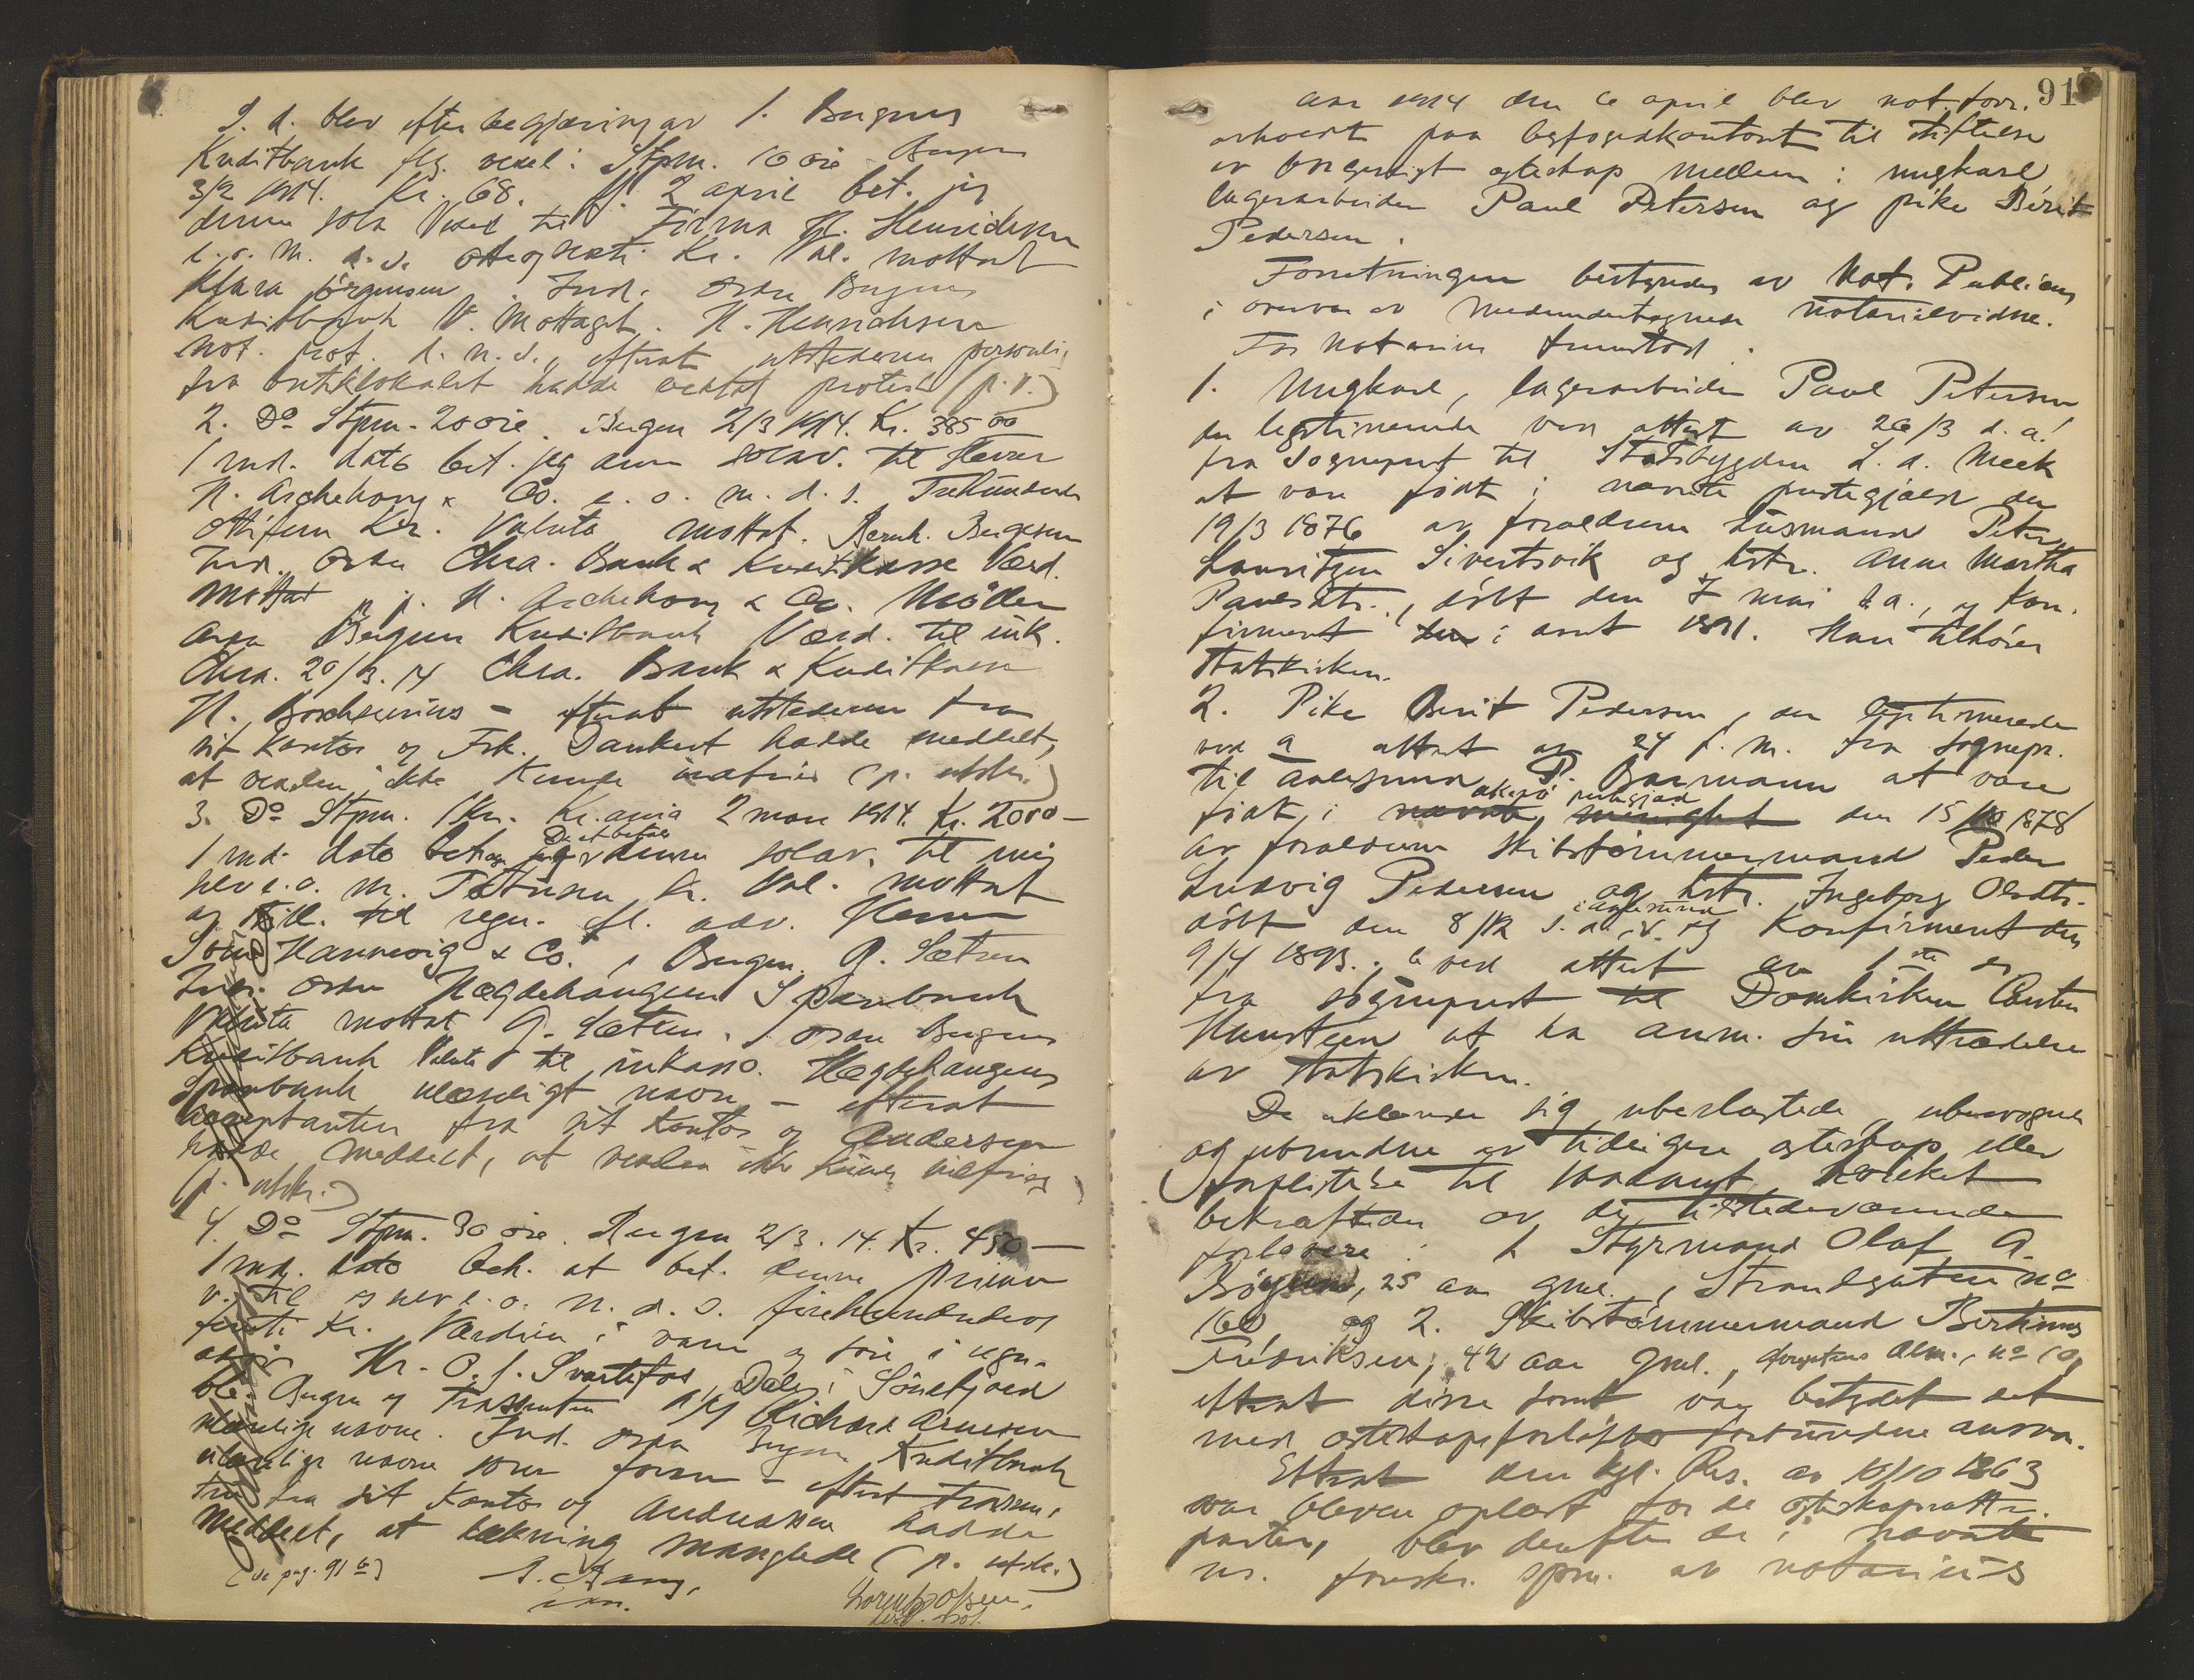 S. d. blev efter begjæring av 1. Bergens
Kreditbank flg. vexel: Stpm. 10 øre Bergen
3/2 1914. Kr. 68. 2 april bet. jeg
denne sola Vexel til Firma H. Henrichsen
e. o. m. d. s. otteogseksti Kr. Val. mottat
Klara Jörgensen Ind. ordre Bergens
Kreditbank V. Mottaget. H. Henrichsen
not. prot. d. n. d., efterat utstederen personlig
fra butiklokalet hadde vedtat protest (p. v.)
2. Do Stpm. 20 øre. Bergen 2/3 1914. Kr. 385 00
1 md. dato bet. jeg denne solav. til Herrer
H. Aschehoug & Co. e. o. m. d. s. Trehundrede
ottifem Kr. Valuta mottat. Bernh. Bergesen
Ind. ordre Chra. Bank & Kreditkasse Værd.
Mottat p. p. H. Aschehoug & Co. Möller
ordre Bergens Kreditbank Værd. til ink.
Chra. 20/3. 14 Chra. Bank & Kreditkasse
H. - efterat utstederen fra
sit kontor og Frk. Dankert hadde meddelt,
at vexlen ikke kunde indfries (p. utstr.)
3. Do Stpm. 1 Kr. Kr.ania 2 mars 1914. Kr. 2000 —
1 md. dato betager De denne solav. til mig
selv e. o. m. Totusen Kr. Val. mottat
og still. til regn. efl. adv. Herrer
Sönn Hannevig & Co., Bergen. G. Sætren
Ind. ordre Hegdehaugens Sparebank
Valuta mottat G. Sætren. ordre Bergens
Kreditbank Valuta til inkasso. Hegdehaugens
Sparebank ulæseligt navn - efterat
acceptanten fra sit kontor og Andersen
hadde meddelt, at vexlen ikke kunde indfries
(p. utstr.)
4. Do Stpm. 30 øre. Bergen 2/3. 14. Kr. 450 —
1 md. dato beh. at bet. denne prima
v. til os selv e. o. n. d. s. firehundredeog
femti Kr. Værdien i varer og före i regn.
Hr. O. J. Svartefos, Dale i Söndfjord
bet. Bergen og Trassenten A/S Richard Arnesen
ulæselige navne. Ind. ordre Bergens Kreditbank
ulæselige navne som foran - efterat trassen-
ten fra sit kontor og Andreassen hadde
meddelt, at dækning manglede (p. utstr.)
(se pag. 91 b)
91
Aar 1914 den 6 april blev not. forr.
avholdt paa byfogedkontoret til stiftelse
av borgerligt egteskap mellem: ungkarl
lagerarbeider Paul Petersen og pike Berit
Pedersen.
Forretningen bestyredes av Not. Publicus
i overvær av medundertegnede notarialvidne.
For Notarius fremstod:
1. Ungkarl, lagerarbeider Paul Petersen,
der legitimerede ved attest av 26/3 d. a.
fra Sogneprest til Statsbygden L. d. Meek
at være födt i nævnte prestegjæld den
19/3 1876 av forældrene husmand Peter
Lauritzen Sivertsvik og hstr. Anne Martha
Paulsdtr., döbt den 7 mai s. a., og kon-
firmert den i aaret 1891. Han tilhörer
statskirken.
2. Pike Berit Pedersen, der legitimerede
ved a attest av 24 f. m. fra sognepr.
til Aalesund P. Barmann at være
födt i nævnte menighet prestegjæld den 15/10 1878
av forældrene Skibstömmermand Peder
Ludvig Pedersen og hstr. Ingeborg Olsdtr.
döbt den 8/12 s. a. og i Aalesund konfirmert den
9/4 1893., b ved attest av 1ste ds
fra sogneprest til Domkirken Carsten
Hansteen at ha anm. sin uttrædelse
av statskirken.
De erklærede sig ubeslægtede, ubesvogrede
og ubundne av tidligere egteskap eller
forpligtelse til saadant, hvilket
bekræftedes av de tilstedeværende
forlovere: 1 Styrmand Olaf A.
25 aar gml., Strandgaten no
160 og 2. Skibstömmermand Bertinus
Fredriksen, 42 aar gml., Alm., no 10,
efterat disse först var betydet det
med egteskapsforlöfter forbundne ansvar.
Efterat den kgl. Res. av 10/10 1863
var bleven oplæst for de egteskapsatt.
parter, blev derefter de i nævnte
res. foreskr. spm. av notarius